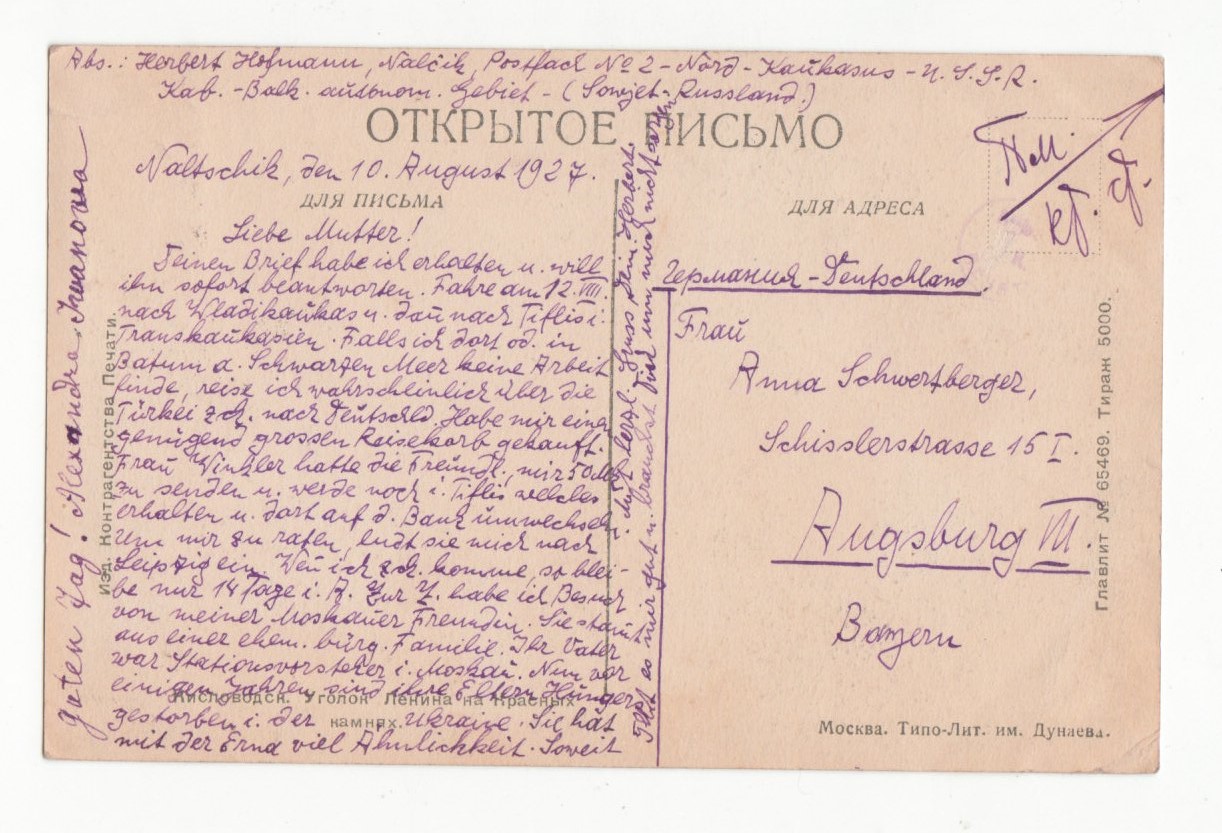 Abs.: Herbert Hofmann, Nalčik, Postfach № 2 - Nord-Kaukasus - U.S.S.R.
Kab.-Balk. autonom. Gebiet - (Sowjet-Russland.)
ОТКРЫТОЕ ПИСЬМО
Naltschik, den 10. August 1927.
ДЛЯ ПИСЬМА
Liebe Mutter!
Deinen Brief habe ich erhalten u. will
ihn sofort beantworten. Fahre am 12. VIII.
nach Wladikaukas u. dan nach Tiflis i.
Transkaukasien. Falls ich dort od. in
Batum a. Schwarzen Meer keine Arbeit
finde, reise ich wahrscheinlich über die
Türkei zck. nach Deutschld. Habe mir einen
genügend grossen Reisekorb gekauft.
Frau Winkler hatte die Freundl., mir 50 M.
zu senden u. werde noch i. Tiflis welches
erhalten u. dort auf d. Bank umwechseln.
Um mir zu raten, ladt sie mich nach
Leipzig ein. Wen ich zck. komme, so blei-
be nur 14 Tage i. A. Zur Z. habe ich Besuch
von meiner Moskauer Freundin. Sie stamt
aus einer ehem. bürg. Familie. Ihr Vater
war Stationsvorsteher i. Moskau. Nun vor
einigen Jahren sind ihre Eltern Hunger
gestorben i. der Ukraine. Sie hat
mit der Erna viel Ähnlichkeit. Soweit
geht es mir gut u. brauchst Dich um mich nicht sorgen.
herzl. Gruss Dein Herbert.
Guten Tag! Alexandra Iwanowa
Изд. Контрагентства Печати.
Кисловодск. Уголок Ленина на Красных
камнях.
ДЛЯ АДРЕСА
Германия - Deutschland
Frau
Anna Schwertberger,
Schisslerstrasse 15 I.
Augsburg III.
Bayern
Главлит № 65469. Тираж 5000.
Москва. Типо-Лит. им. Дунаева.